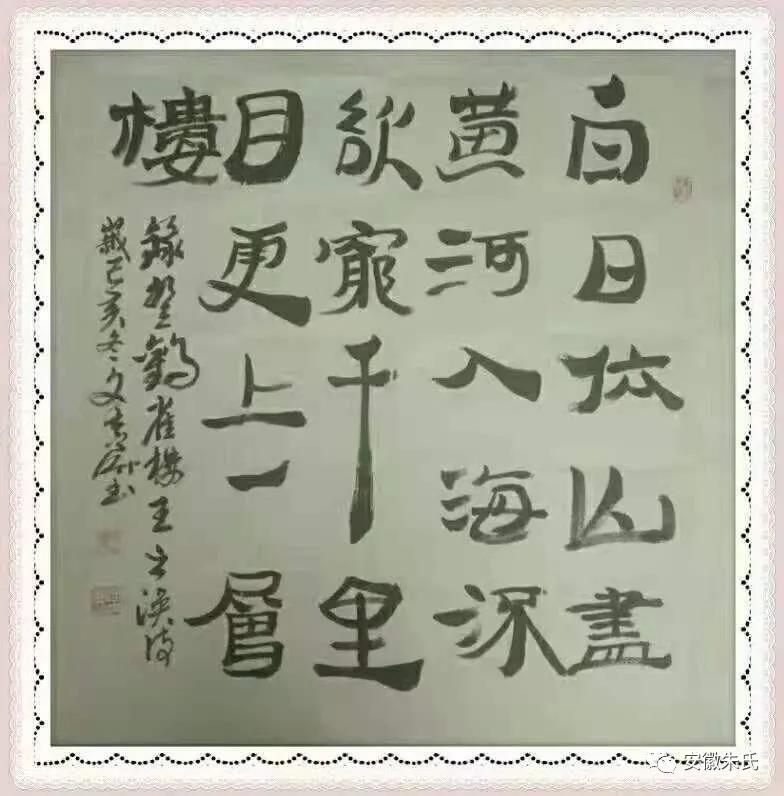 白日依山盡
黄河入海深
欲窮千里
目更上一層
樓
錄登鸛雀樓王之渙诗
歲己亥冬文
安徽朱氏